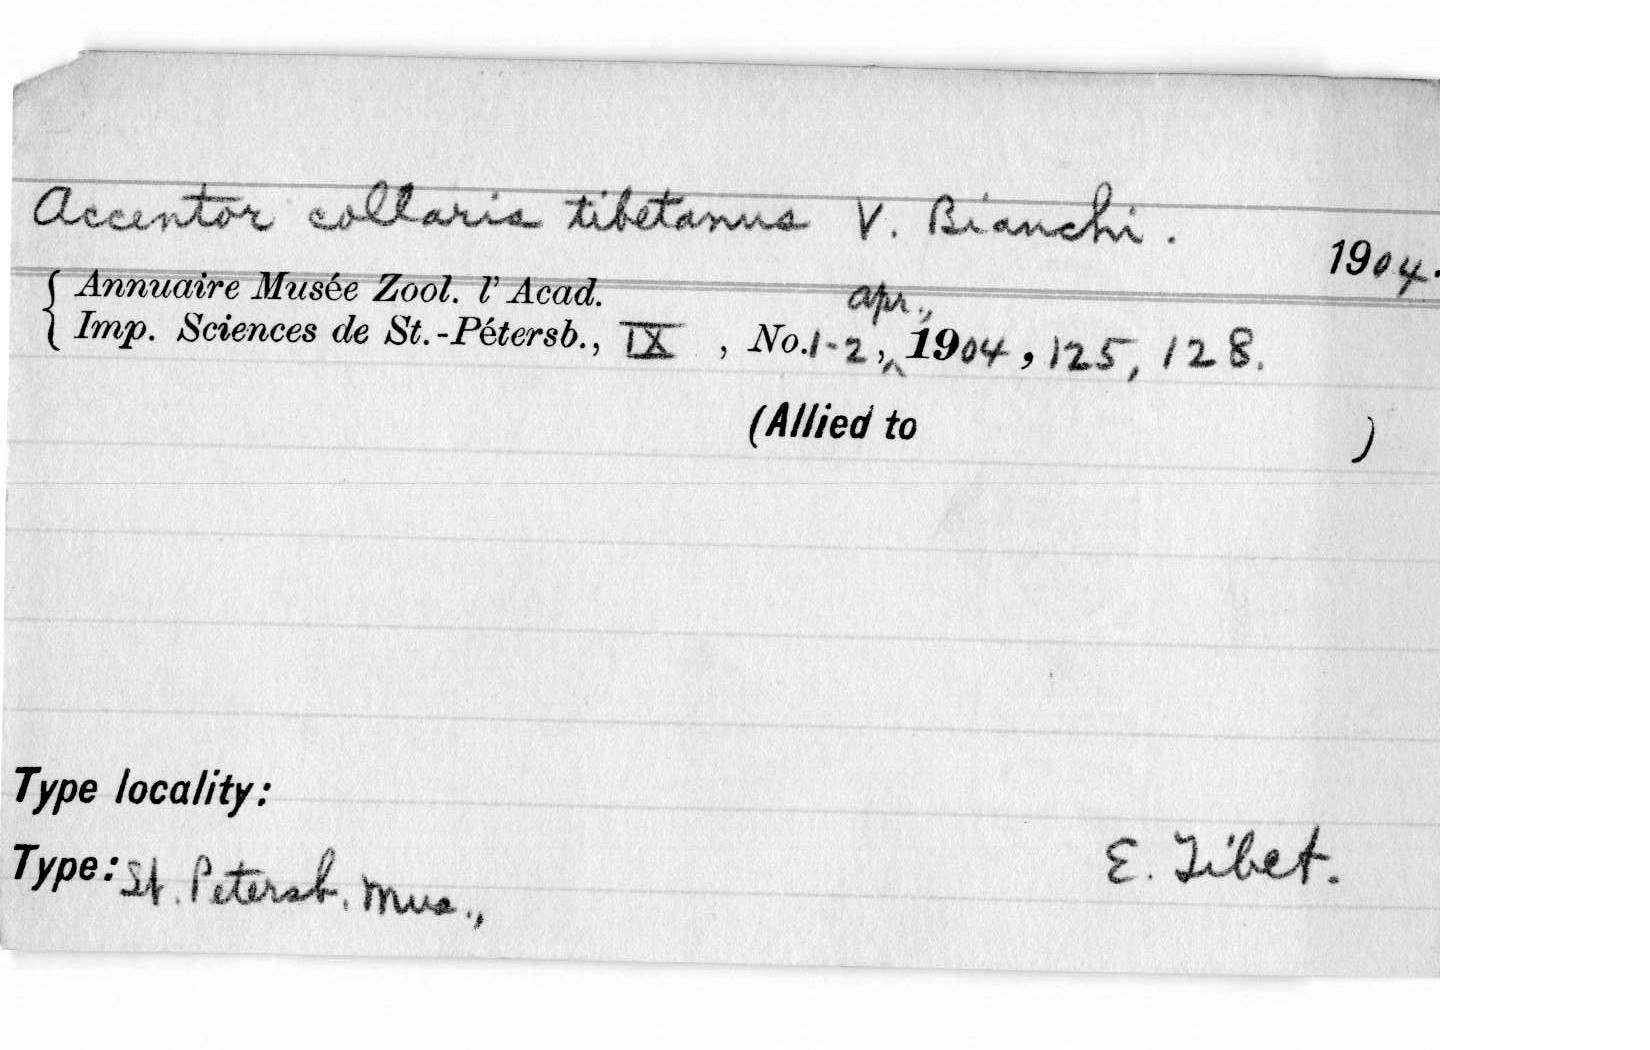 Accentor collaris tibetanus V. Bianchi.
1904.
Annuaire Musée Zool. l' Acad.
apr.,
Imp. Sciences de St.-Pétersb., IX , No.1-2, 1904, 125, 128.
(Allied to )
Type locality:
E. Tibet.
Type: St. Petersb. Mus.,